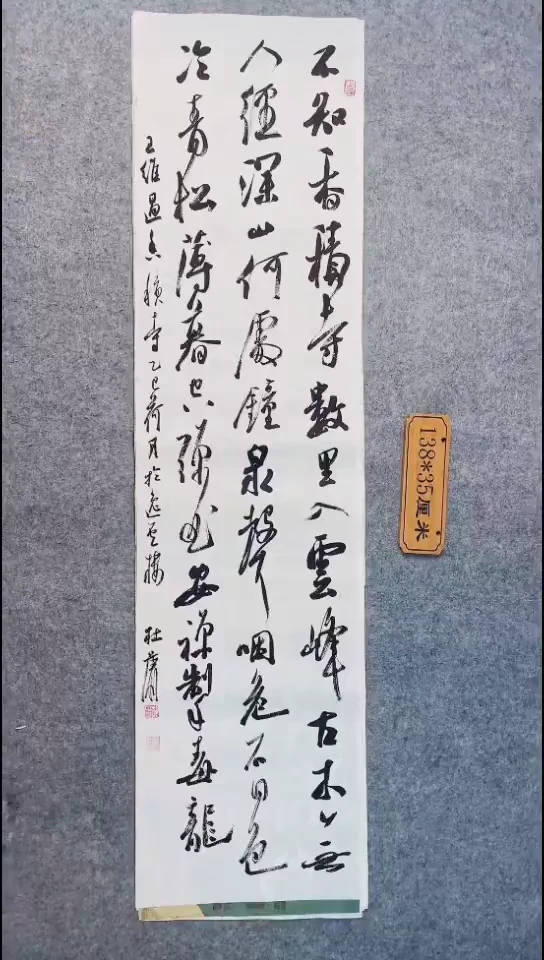 不知香積寺數里入雲峰古木無
人徑深山何處鐘泉聲咽危石日色
冷青松薄暮空潭曲安禪制毒龍
王維過香積寺乙巳荷月於逸云樓 杜
138*35厘米